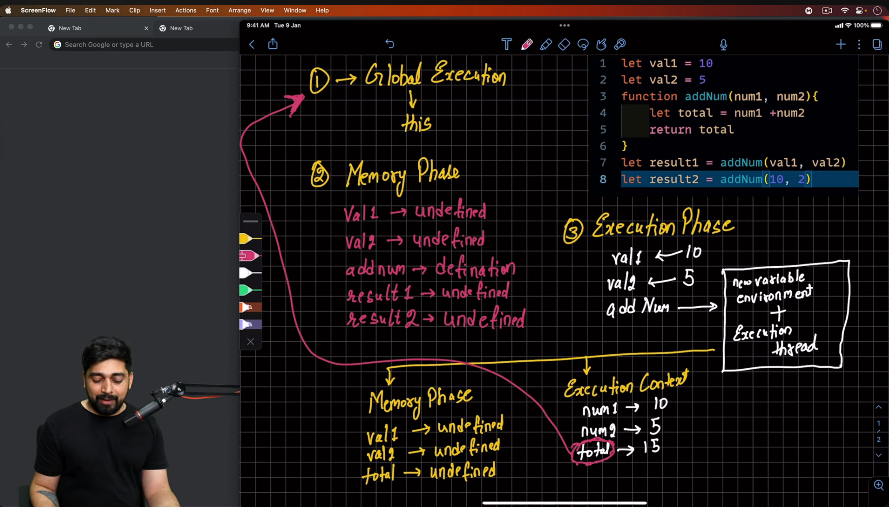 ScreenFlow File Edit Mark Clip Insert Actions Font Arrange View Window Help
New Tab
New Tab
Search Google or type a URL
9:41 AM Tue 9 Jan
100%
① → Global Execution
↓
this
② Memory Phase
val1 → undefined
val2 → undefined
addnum → defination
result1 → undefined
result2 → undefined
1 let val1 = 10
2 let val2 = 5
3 function addNum(num1, num2){
4 let total = num1 +num2
5 return total
6 }
7 let result1 = addNum(val1, val2)
8 let result2 = addNum(10, 2)
③ Execution Phase
val1 ← 10
val2 ← 5
add Num →
new variable
environment
+
Execution
thread
Memory Phase
val1 → undefined
val2 → undefined
total → undefined
Execution Context
num1 → 10
num2 → 5
total → 15
1
2